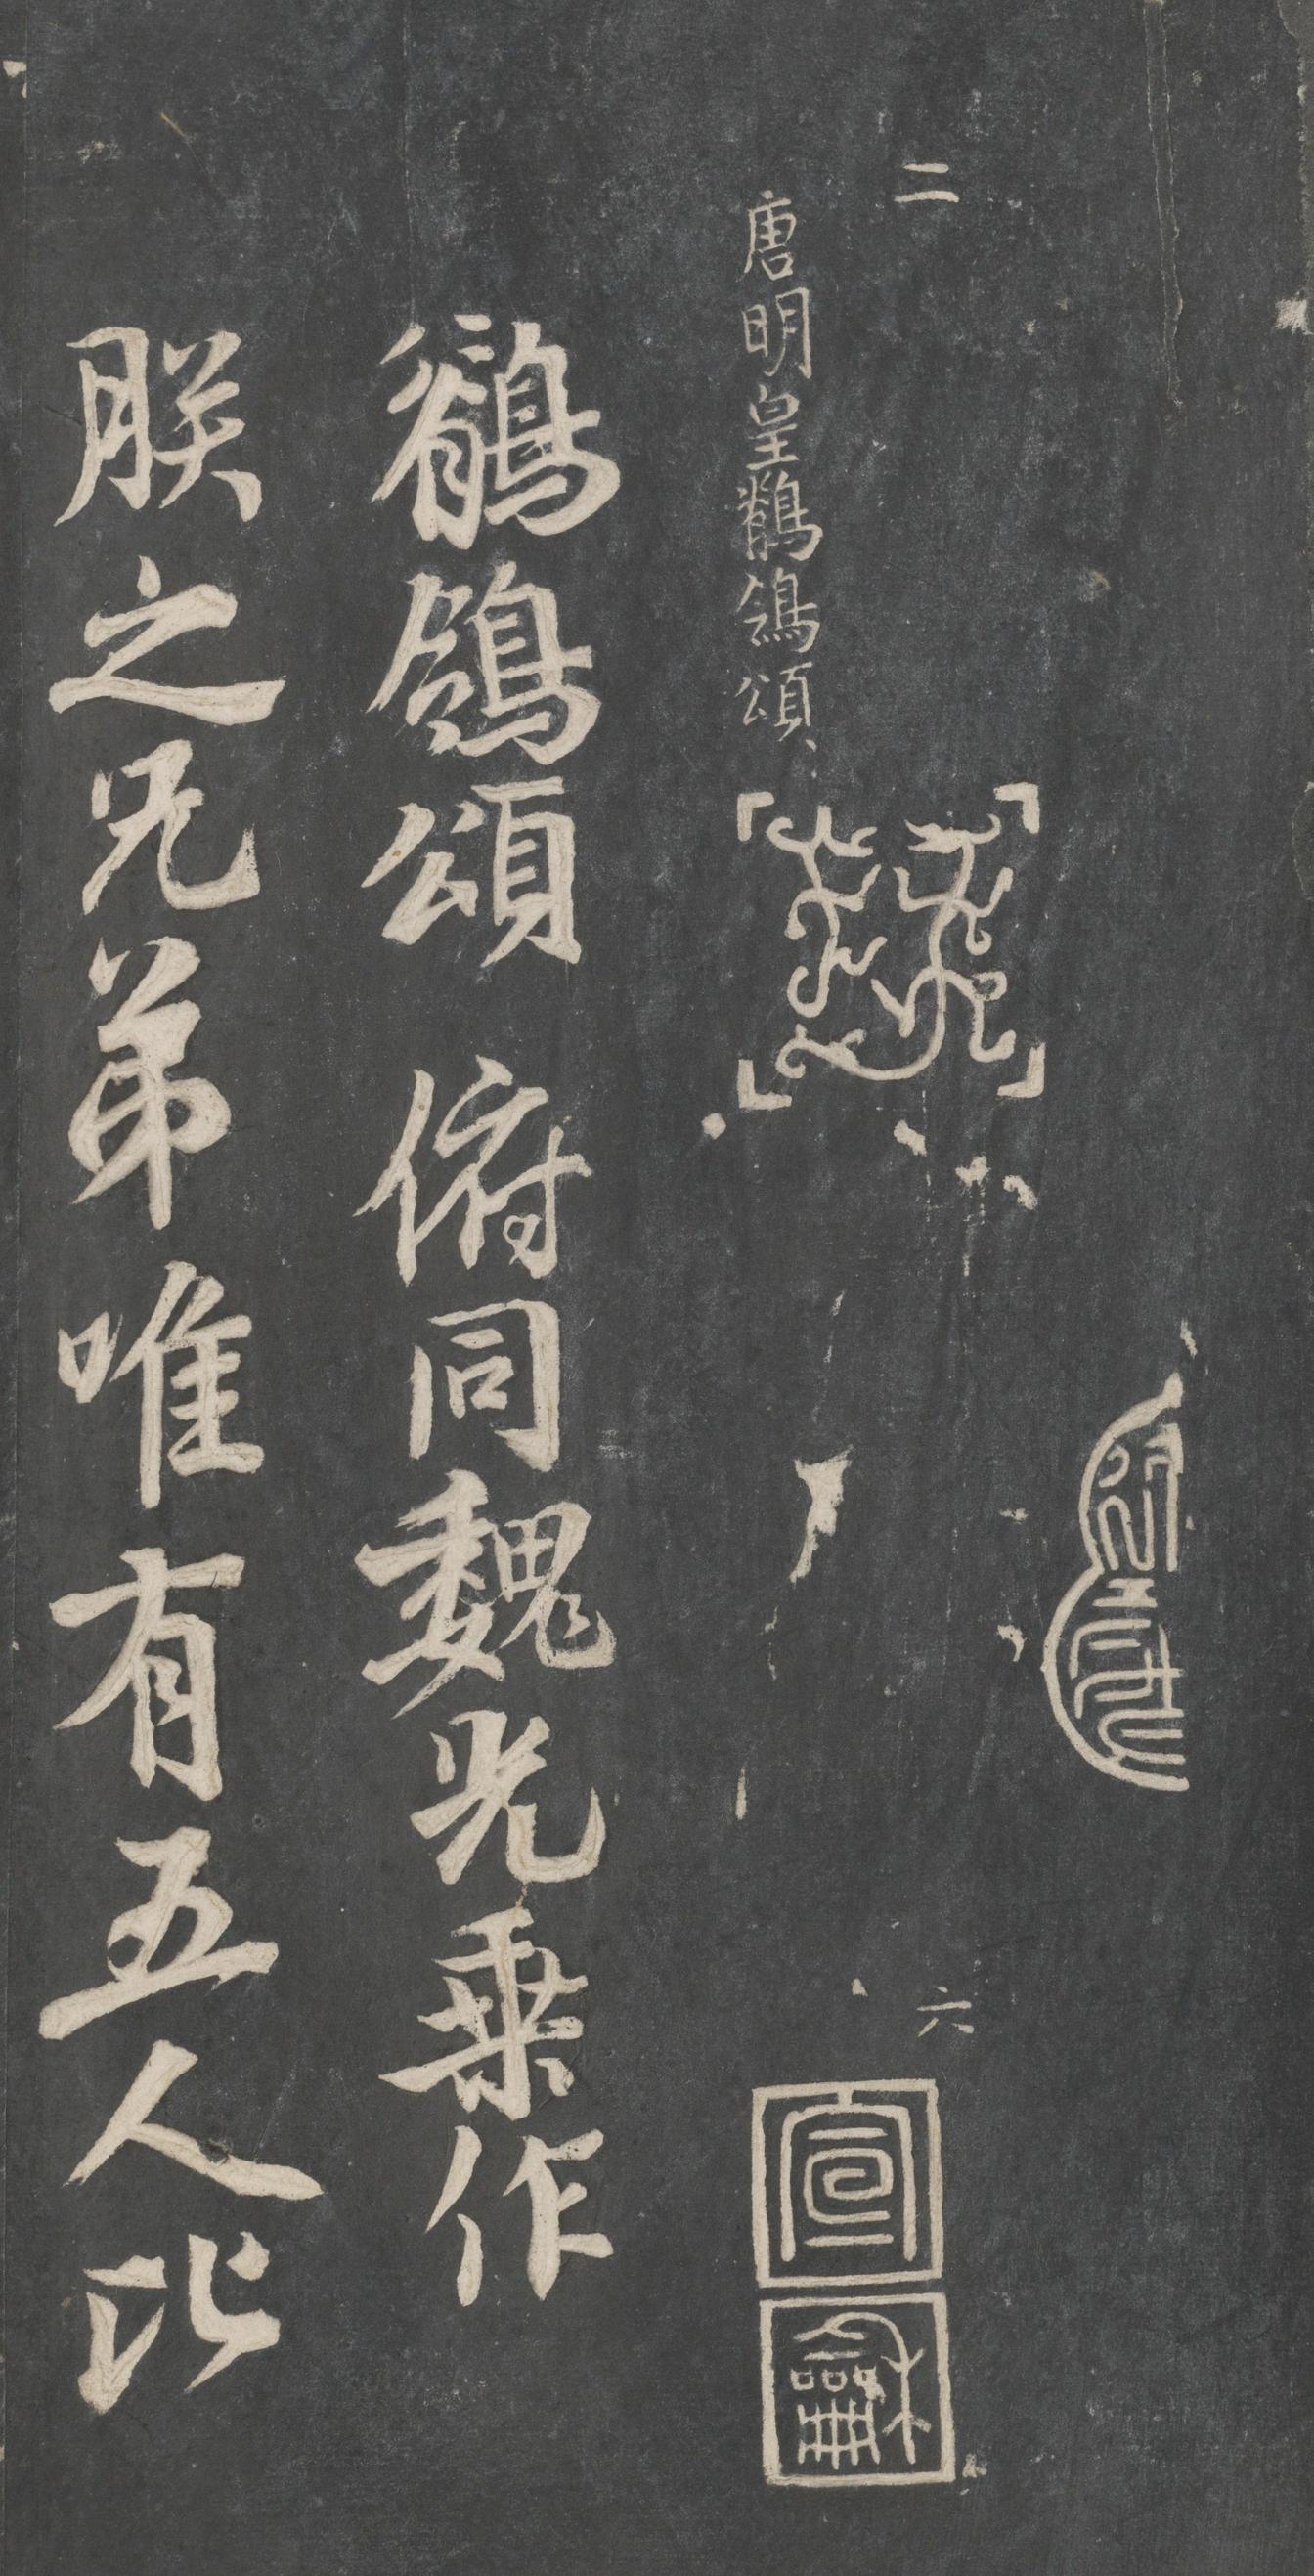 二
唐明皇鶺鴒頌
六
宣
龢
鶺鴒頌 俯同魏光乗作
朕之兄弟唯有五人比